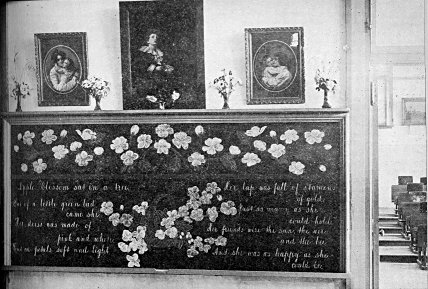 Apple Blossom sat in a tree,
Out of a little green bud
came she
Her dress was made of
pink and white
petals soft and light
Her lap was full of stamens
of gold,
Just as many as she
could hold.
Her friends were the
and the bee
And she was as happy as she
could be